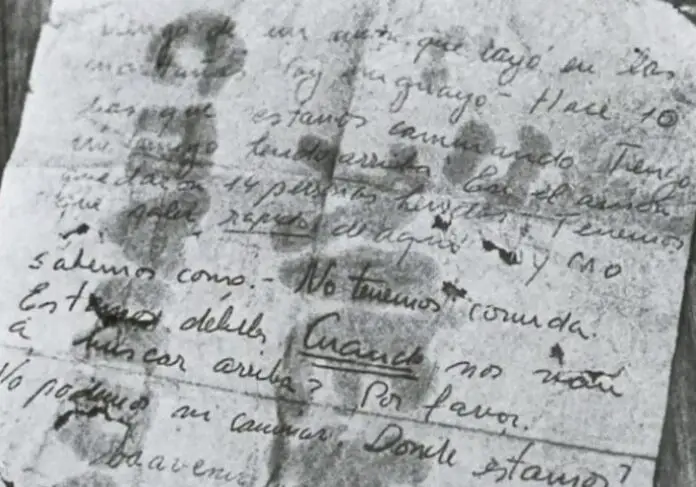 Vengo de un avión que cayó en las
montañas. Soy uruguayo - Hace 10
días que estamos caminando Tengo
un amigo herido arriba. En el avión
quedaron 14 personas heridas. Tenemos
que salir rapido de aquí y no
sabemos como. - No tenemos comida.
Estamos débiles Cuando nos van
a buscar arriba? Por favor.
No podemos ni caminar. Donde estamos?